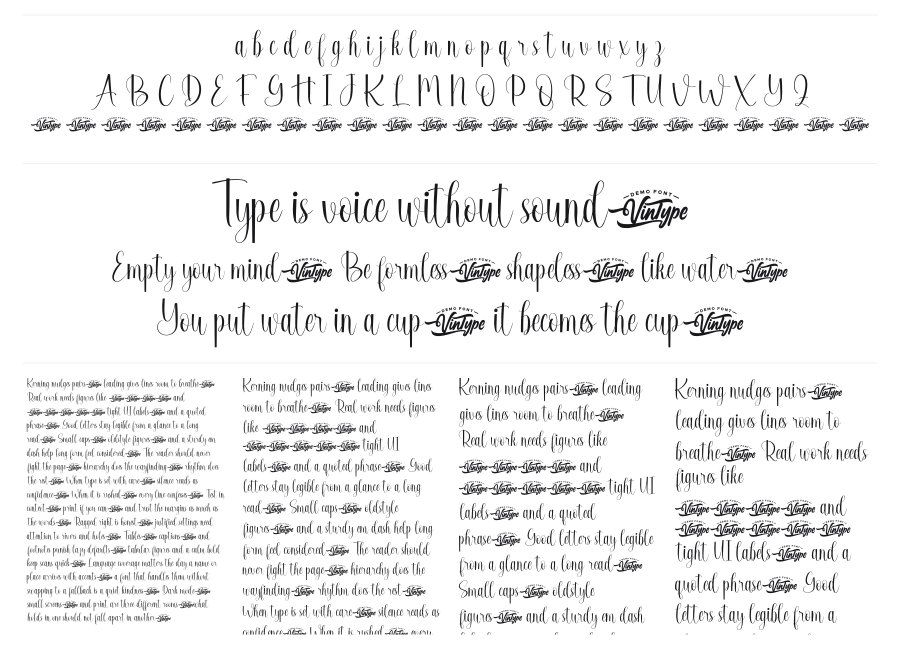 a b c d e f g h i j k l m n o p q r s t u v w x y z
A B C D E F G H I J K L M N O P Q R S T U V W X Y Z
Vintype Vintype Vintype Vintype Vintype Vintype Vintype Vintype Vintype Vintype Vintype Vintype Vintype Vintype Vintype Vintype Vintype Vintype Vintype Vintype Vintype Vintype Vintype Vintype
Type is voice without sound DEMO FONT Vintype
Empty your mind DEMO FONT Vintype Be formless DEMO FONT Vintype shapeless DEMO FONT Vintype like water DEMO FONT Vintype
You put water in a cup DEMO FONT Vintype it becomes the cup DEMO FONT Vintype
Kerning nudges pairs Vintype leading gives lines room to breathe Vintype
Real work needs figures like Vintype Vintype Vintype Vintype and
Vintype Vintype Vintype Vintype Vintype Vintype tight UI labels Vintype and a quoted
phrase Vintype Good letters stay legible from a glance to a long
read Vintype Small caps Vintype oldstyle figures Vintype and a sturdy em
dash help long form feel considered Vintype The reader should never
fight the page Vintype hierarchy does the wayfinding Vintype rhythm does
the rest Vintype When type is set with care Vintype silence reads as
confidence Vintype When it is rushed Vintype every line confesses Vintype Test in
context Vintype print if you can Vintype and trust the margins as much as
the words Vintype Ragged right is honest Vintype justified settings need
attention to rivers and holes Vintype Tables Vintype captions Vintype and
footnotes punish lazy defaults Vintype tabular figures and a calm bold
keep scans quick Vintype Language coverage matters the day a name or
place arrives with accents Vintype a font that handles them without
swapping to a fallback is a quiet kindness Vintype Dark mode Vintype
small screens Vintype and print are three different rooms Vintype what
holds in one should not fall apart in another Vintype
Kerning nudges pairs Vintype leading gives lines
room to breathe Vintype Real work needs figures
like Vintype Vintype Vintype Vintype and
Vintype Vintype Vintype Vintype Vintype Vintype tight UI
labels Vintype and a quoted phrase Vintype Good
letters stay legible from a glance to a long
read Vintype Small caps Vintype oldstyle
figures Vintype and a sturdy em dash help long
form feel considered Vintype The reader should
never fight the page Vintype hierarchy does the
wayfinding Vintype rhythm does the rest Vintype
When type is set with care Vintype silence reads as
confidence Vintype When it is rushed Vintype every
Kerning nudges pairs Vintype leading
gives lines room to breathe Vintype
Real work needs figures like
Vintype Vintype Vintype Vintype and
Vintype Vintype Vintype Vintype Vintype Vintype tight UI
labels Vintype and a quoted
phrase Vintype Good letters stay legible
from a glance to a long read Vintype
Small caps Vintype oldstyle
figures Vintype and a sturdy em dash
Kerning nudges pairs Vintype
leading gives lines room to
breathe Vintype Real work needs
figures like
Vintype Vintype Vintype Vintype and
Vintype Vintype Vintype Vintype Vintype Vintype
tight UI labels Vintype and a
quoted phrase Vintype Good
letters stay legible from a